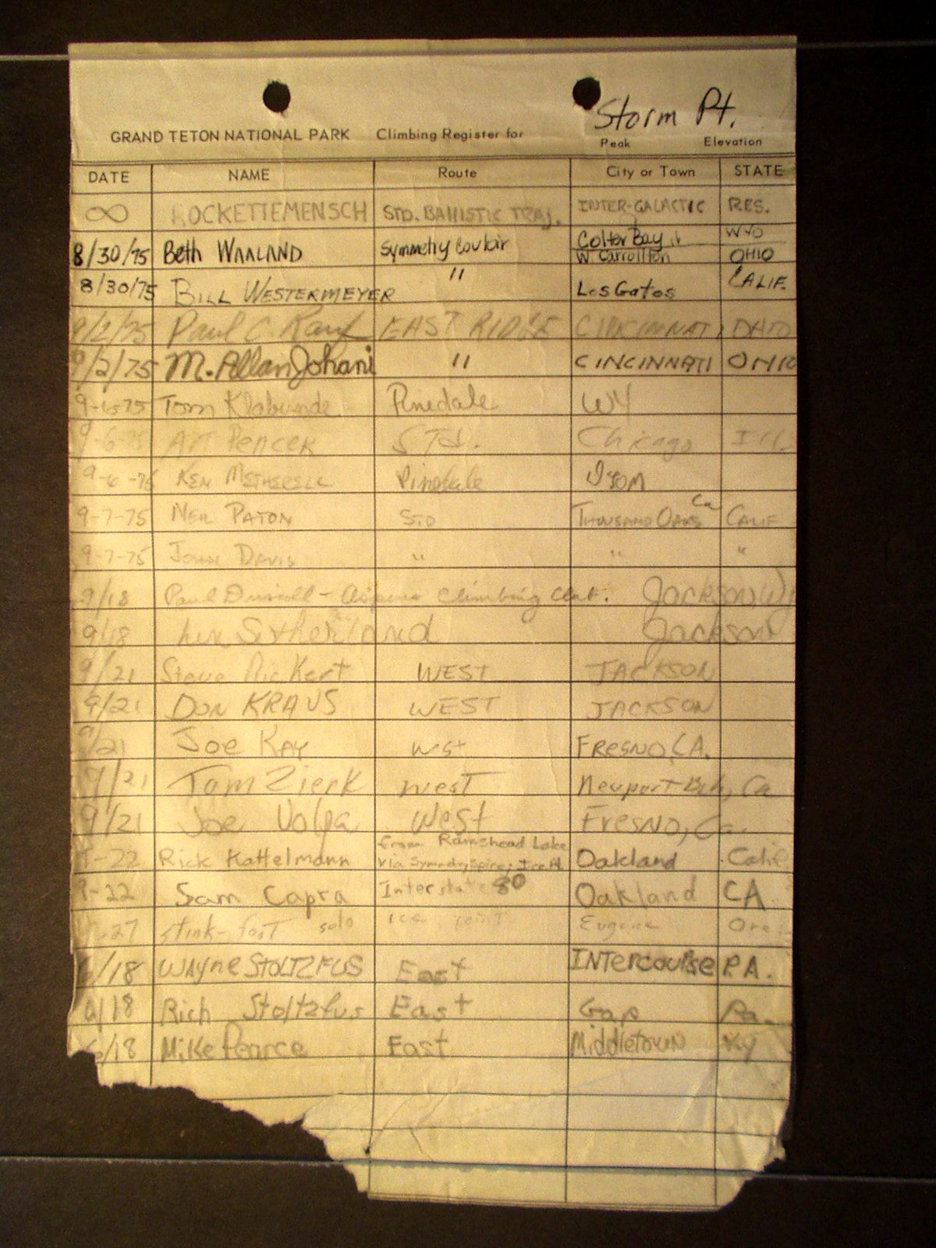 Storm Pt.
GRAND TETON NATIONAL PARK Climbing Register for
Peak Elevation
DATE NAME Route City or Town STATE
∞ ROCKETTEMENSCH STD. BALLISTIC TRAJ. INTER-GALACTIC RES.
8/30/75 Beth WAALAND Symmetry Couloir Colter Bay WYO
W. Carrollton OHIO
8/30/75 BILL WESTERMEYER " Los Gatos CALIF.
9/2/75 Paul C. EAST RIDGE CINCINNATI OHIO
9/2/75 M. Allan " CINCINNATI OHIO
Tom Klabunde Pinedale WY
9-6-75 Art Std. Chicago Ill.
9-6-75 KEN Pinedale
9-7-75 NEIL PATON STD THOUSAND OAKS Ca CALIF
9-7-75 JOHN DAVIS " " "
9/18 Paul - Climbing Jackson, Wy
9/18 Sutherland Jackson
9/21 Steve Rickert WEST JACKSON
9/21 DON KRAUS WEST JACKSON
9/21 Joe KAY Wst FRESNO, CA.
9/21 Tom Zierk West Newport Bch, Ca
9/21 Joe Volpa West Fresno, Ca.
9-22 Rick Kattelmann from Ramshead Lake Oakland Calif
via Symmetry Spire: Ice Pt.
9-22 Sam Capra Interstate 80 Oakland CA.
stink-foot solo ice point Eugene Ore.
6/18 Wayne STOLTZFUS East INTERCOURSE PA.
6/18 Rich Stoltzfus East Gap Pa.
6/18 Mike Pearce East Middletown Ky